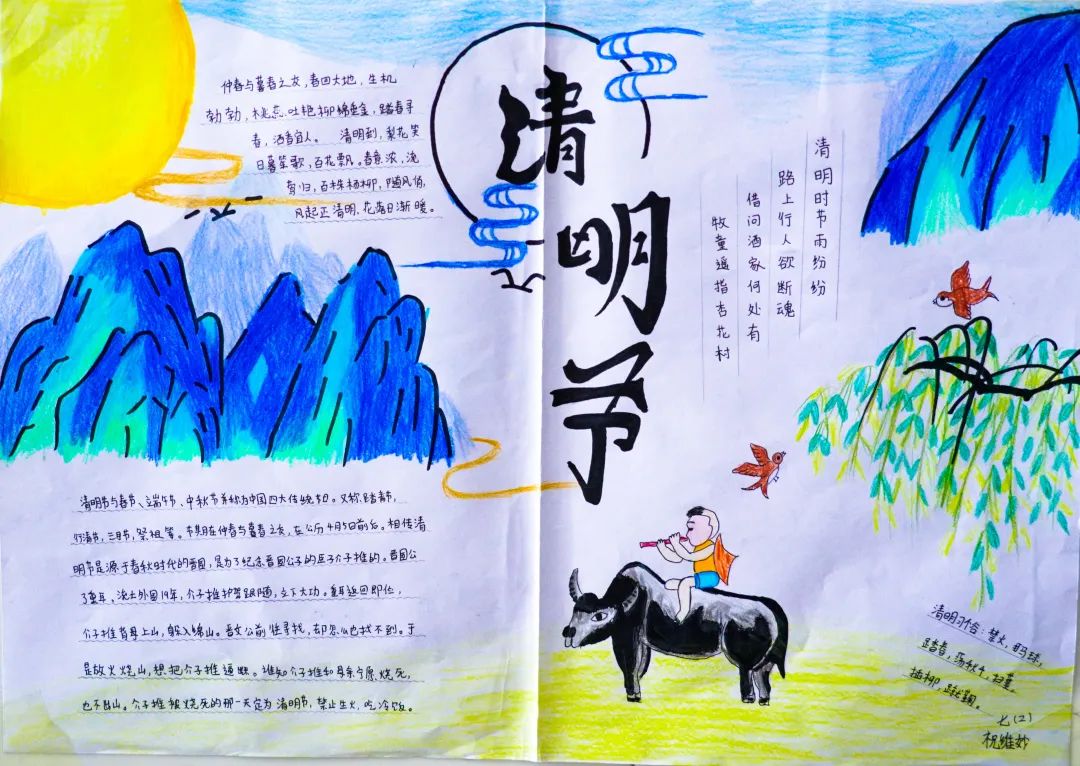 清明节
仲春与暮春之交，春回大地，生机
勃勃，桃蕊吐艳柳绵垂金，踏春寻
春，酒香宜人。 清明到，梨花笑
日暮笙歌，百花飘。春意浓，浇
有归，百株杨柳，随风俏，
风起正清明，花落日渐暖。
清明时节雨纷纷
路上行人欲断魂
借问酒家何处有
牧童遥指杏花村
清明节与春节、端午节、中秋节并称为中国四大传统节日。又称踏青节，
行清节，三月节，祭祖节等。节期在仲春与暮春之交，在公历4月5日前后。相传清
明节是源于春秋时代的晋国，是为了纪念晋国公子的臣子介子推的。晋国公
子重耳，流亡外国19年，介子推护驾跟随，立下大功。重耳返回即位，
介子推背母上山，躲入绵山。晋文公前往寻找，却怎么也找不到。于
是放火烧山，想把介子推逼出。谁知介子推和母亲宁愿烧死，
也不出山。介子推被烧死的那一天定为清明节，禁止生火，吃冷饭。
清明习俗：禁火，马球，
踏春，荡秋千，扫墓，
插柳，蹴鞠。
七（2）
祝维妙